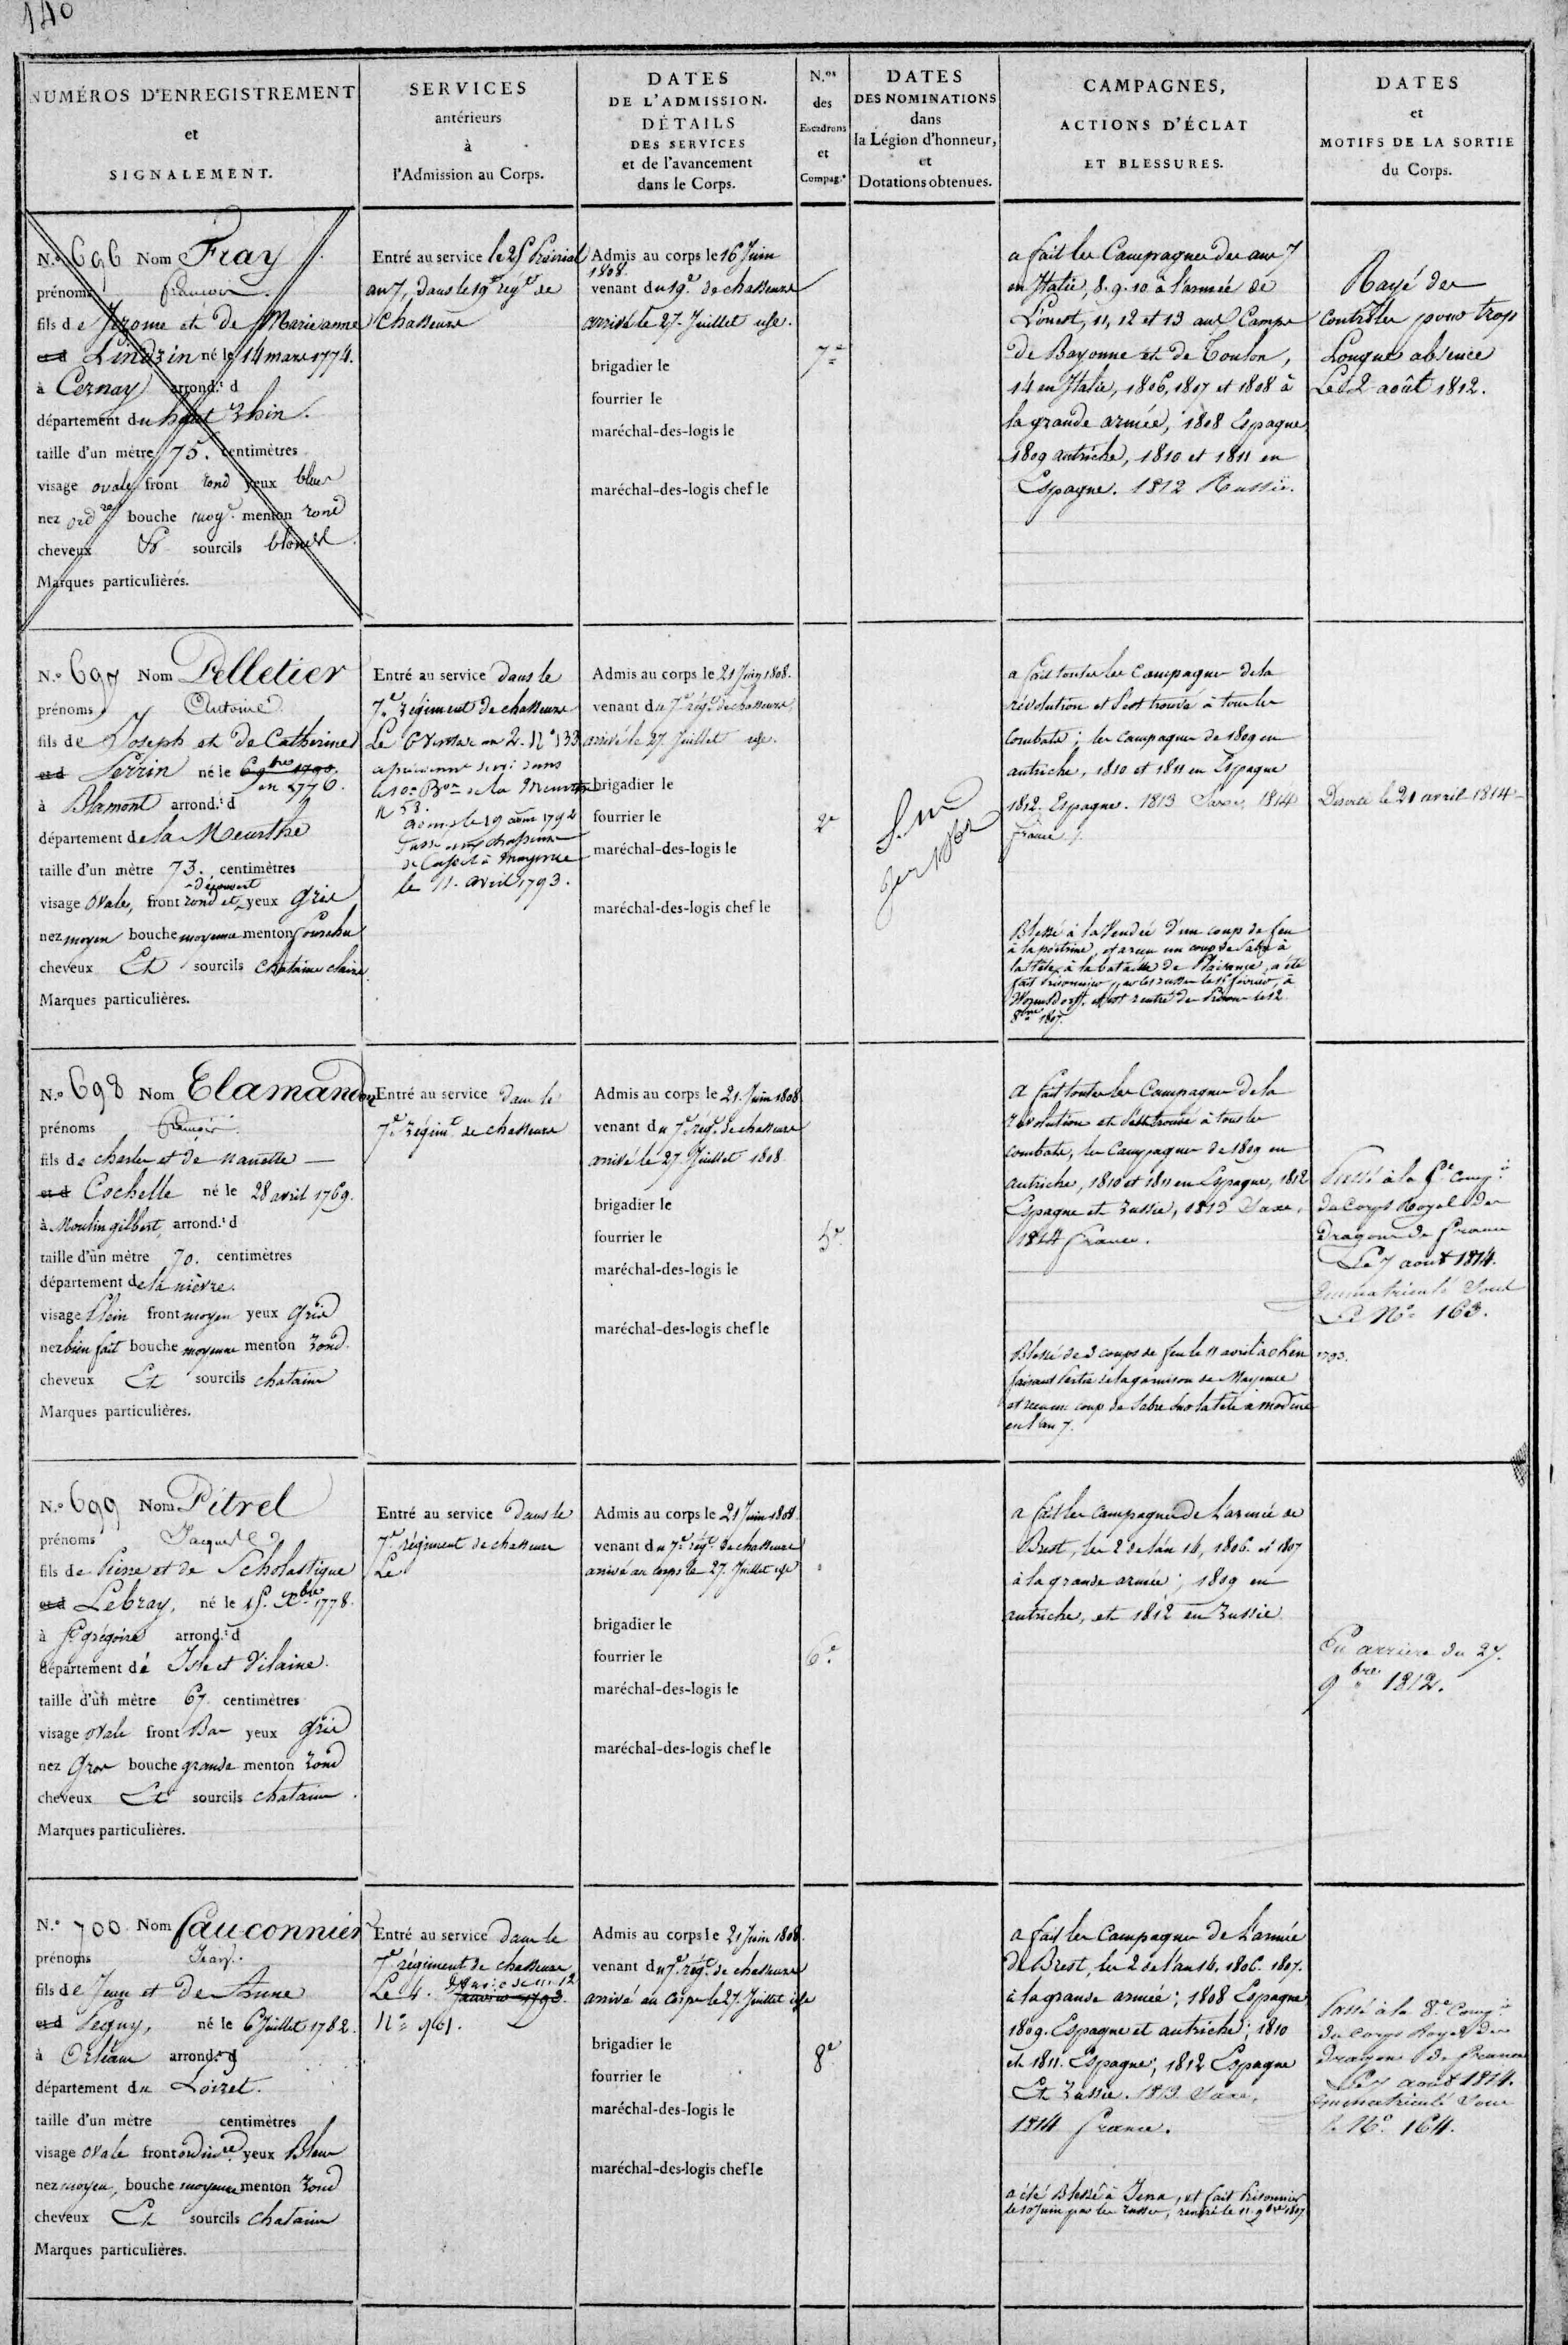 140
NUMÉROS D'ENREGISTREMENT
et
SIGNALEMENT.
SERVICES
antérieurs
à
l'Admission au Corps.
DATES
DE L'ADMISSION.
DÉTAILS
DES SERVICES
et de l'avancement
dans le Corps.
N.os
des
Escadrons
et
Compag.s
DATES
DES NOMINATIONS
dans
la Légion d'honneur,
et
Dotations obtenues.
CAMPAGNES,
ACTIONS D'ÉCLAT
ET BLESSURES.
DATES
et
MOTIFS DE LA SORTIE
du Corps.
N.o 696 Nom Fray
prénoms françois
fils de Jerome et de Marie anne
et d Lindzin né le 14 mars 1774.
à Cernay arrond.t d
département du haut Rhin.
taille d'un mètre 75. centimètres
visage ovale front rond yeux bleus
nez ord.re bouche moy.e menton rond
cheveux & sourcils blonds
Marques particulières.
Entré au service le 25 Prairial
an 7, dans le 19e régt de
Chasseurs
Admis au corps le 16 Juin
1808.
venant du 19e de chasseurs
arrivé le 27. Juillet
brigadier le
fourrier le
maréchal-des-logis le
maréchal-des-logis chef le
7e
a fait les Campagnes des ans 7
en Italie, 8. 9. 10 à l'armée de
L'ouest, 11, 12 et 13 aux Camps
de Bayonne et de Toulon,
14 en Italie, 1806, 1807 et 1808 à
la grande armée, 1808 Espagne
1809 autriche, 1810 et 1811 en
Espagne. 1812 Russie.
Rayé des
contrôles pour trop
Longue absence
Le 12 août 1812.
N.o 697 Nom Pelletier
prénoms Antoine
fils de Joseph et de Catherine
et d Perrin né le 6 9bre 1790.
en 1776.
à Blamont arrond.t d
département de la Meurthe
taille d'un mètre 73. centimètres
découvert
visage ovale, front rond et yeux gris
nez moyen bouche moyenne menton fourchu
cheveux Et sourcils chatains clairs
Marques particulières.
Entré au service dans le
7e régiment de chasseurs
Le 6 Ventose an 2. No 133
le 10e Bon de la Meurthe
No 53.
admis le 19 1792
Passé aux chasseurs
de Cassel à Mayence
le 11. avril 1793.
Admis au corps le 21 Juin 1808.
venant du 7e régt de chasseurs
arrivé le 27. Juillet
brigadier le
fourrier le
maréchal-des-logis le
maréchal-des-logis chef le
2e
a fait toutes les Campagnes de la
révolution et s'est trouvé à tous les
combats; les Campagnes de 1809 en
autriche, 1810 et 1811 en Espagne
1812. Espagne. 1813 Saxe, 1814
france.
Blessé à la Vendée d'un coup de feu
à la poitrine, et a reçu un coup de Sabre à
la tête, à la bataille de Plaisance, a été
fait Prisonnier par les russes le 5 février, à
et est rentré de Prison le 12
8bre 1807.
Déserté le 21 avril 1814
N.o 698 Nom Elamandon
prénoms françois
fils de charles et de nanette
et d Cochelle né le 28 avril 1769.
à Moulin gilbert, arrond.t d
taille d'un mètre 70. centimètres
département de la nièvre.
visage Plein front moyen yeux gris
nez bien fait bouche moyenne menton rond.
cheveux Et sourcils chatains
Marques particulières.
Entré au service dans le
7e régimt de chasseurs
Admis au corps le 21. Juin 1808
venant du 7e régt de chasseurs
arrivé le 27. Juillet 1808.
brigadier le
fourrier le
maréchal-des-logis le
maréchal-des-logis chef le
5e
a fait toutes les Campagnes de la
révolution et s'est trouvé à tous les
combats, les Campagnes de 1809 en
autriche, 1810 et 1811 en Espagne, 1812
Espagne et russie, 1813 Saxe,
1814 france.
Blessé de 3 coups de feu le 11 avril 1793.
faisant Partie de la garnison de Mayence
et reçu un coup de Sabre sur la tête à modène
en l'an 7.
Passé à la 5e compie
du Corps Royal des
dragons de france
Le 7 aout 1814.
immatriculé Sous
Le No 163.
N.o 699 Nom Pitrel
prénoms Jacques
fils de Pierre et de Scholastique
et d Lebray, né le 15. Xbre 1778.
à St grégoire arrond.t d
département d'é Isle et Vilaine.
taille d'un mètre 67. centimètres
visage ovale front Bas yeux gris
nez Gros bouche grande menton rond
cheveux Et sourcils chatains
Marques particulières.
Entré au service dans le
7e régiment de chasseurs
Le
Admis au corps le 21 Juin 1808.
venant du 7e régt de chasseurs
arrivé au corps le 27. Juillet
brigadier le
fourrier le
maréchal-des-logis le
maréchal-des-logis chef le
6e
a fait les campagnes de L'armée de
Brest, les 2 de l'an 14, 1806. et 1807
à la grande armée; 1809 en
autriche, et 1812 en russie
En arriere du 27.
9bre 1812.
N.o 700 Nom fauconnier
prénoms Jean.
fils de Jean et de Anne
et d Leguy, né le 6 Juillet 1782.
à Orléans arrond.t d
département du Loiret.
taille d'un mètre centimètres
visage ovale front ordinre yeux Bleus
nez moyen, bouche moyenne menton rond
cheveux Et sourcils chatains
Marques particulières.
Entré au service dans le
7e régiment de chasseurs
Le 4. Janvier 1793.
No 961.
Admis au corps le 21 Juin 1808.
venant du 7e régt de chasseurs
arrivé au corps le 27. Juillet
brigadier le
fourrier le
maréchal-des-logis le
maréchal-des-logis chef le
8e
a fait les Campagnes de L'armée
de Brest, les 2 de l'an 14, 1806. 1807.
à la grande armée; 1808 Espagne
1809. Espagne et autriche; 1810
et 1811. Espagne; 1812 Espagne
Et russie. 1813 Saxe,
1814 france.
a été Blessé à Jena, et fait Prisonnier
le 10 Juin par les russes, rentré le 11. 9bre 1807
Passé à la 8.e Compie
du Corps Royal des
dragons de france
Le 7 aout 1814.
immatriculé Sous
le No 164.